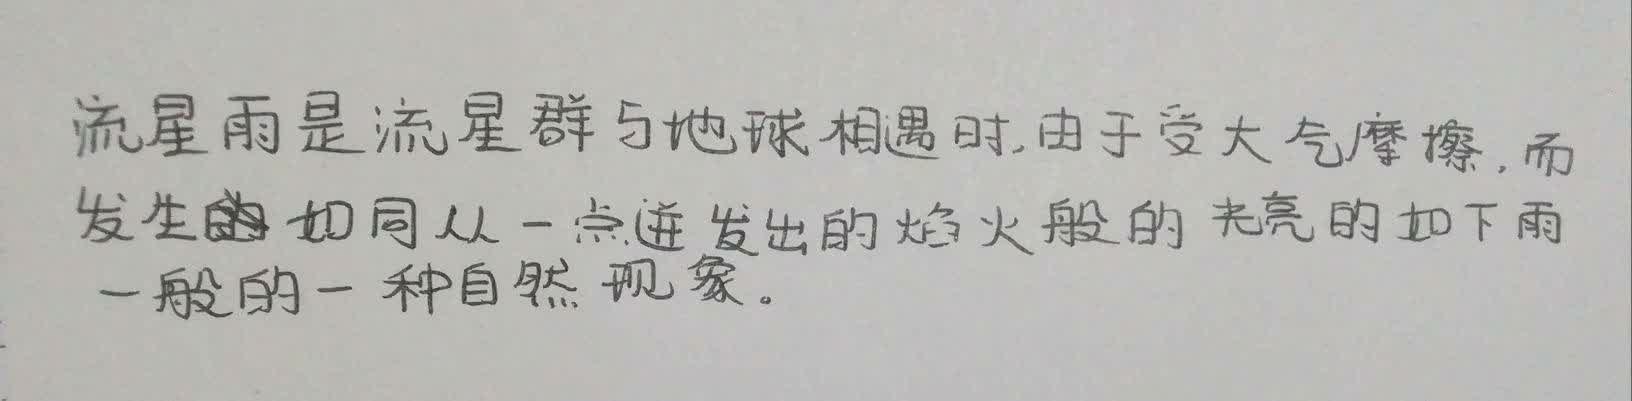 流星雨是流星群与地球相遇时,由于受大气摩擦,而
发生的如同从一点迸发出的焰火般的光亮的如下雨
一般的一种自然现象。